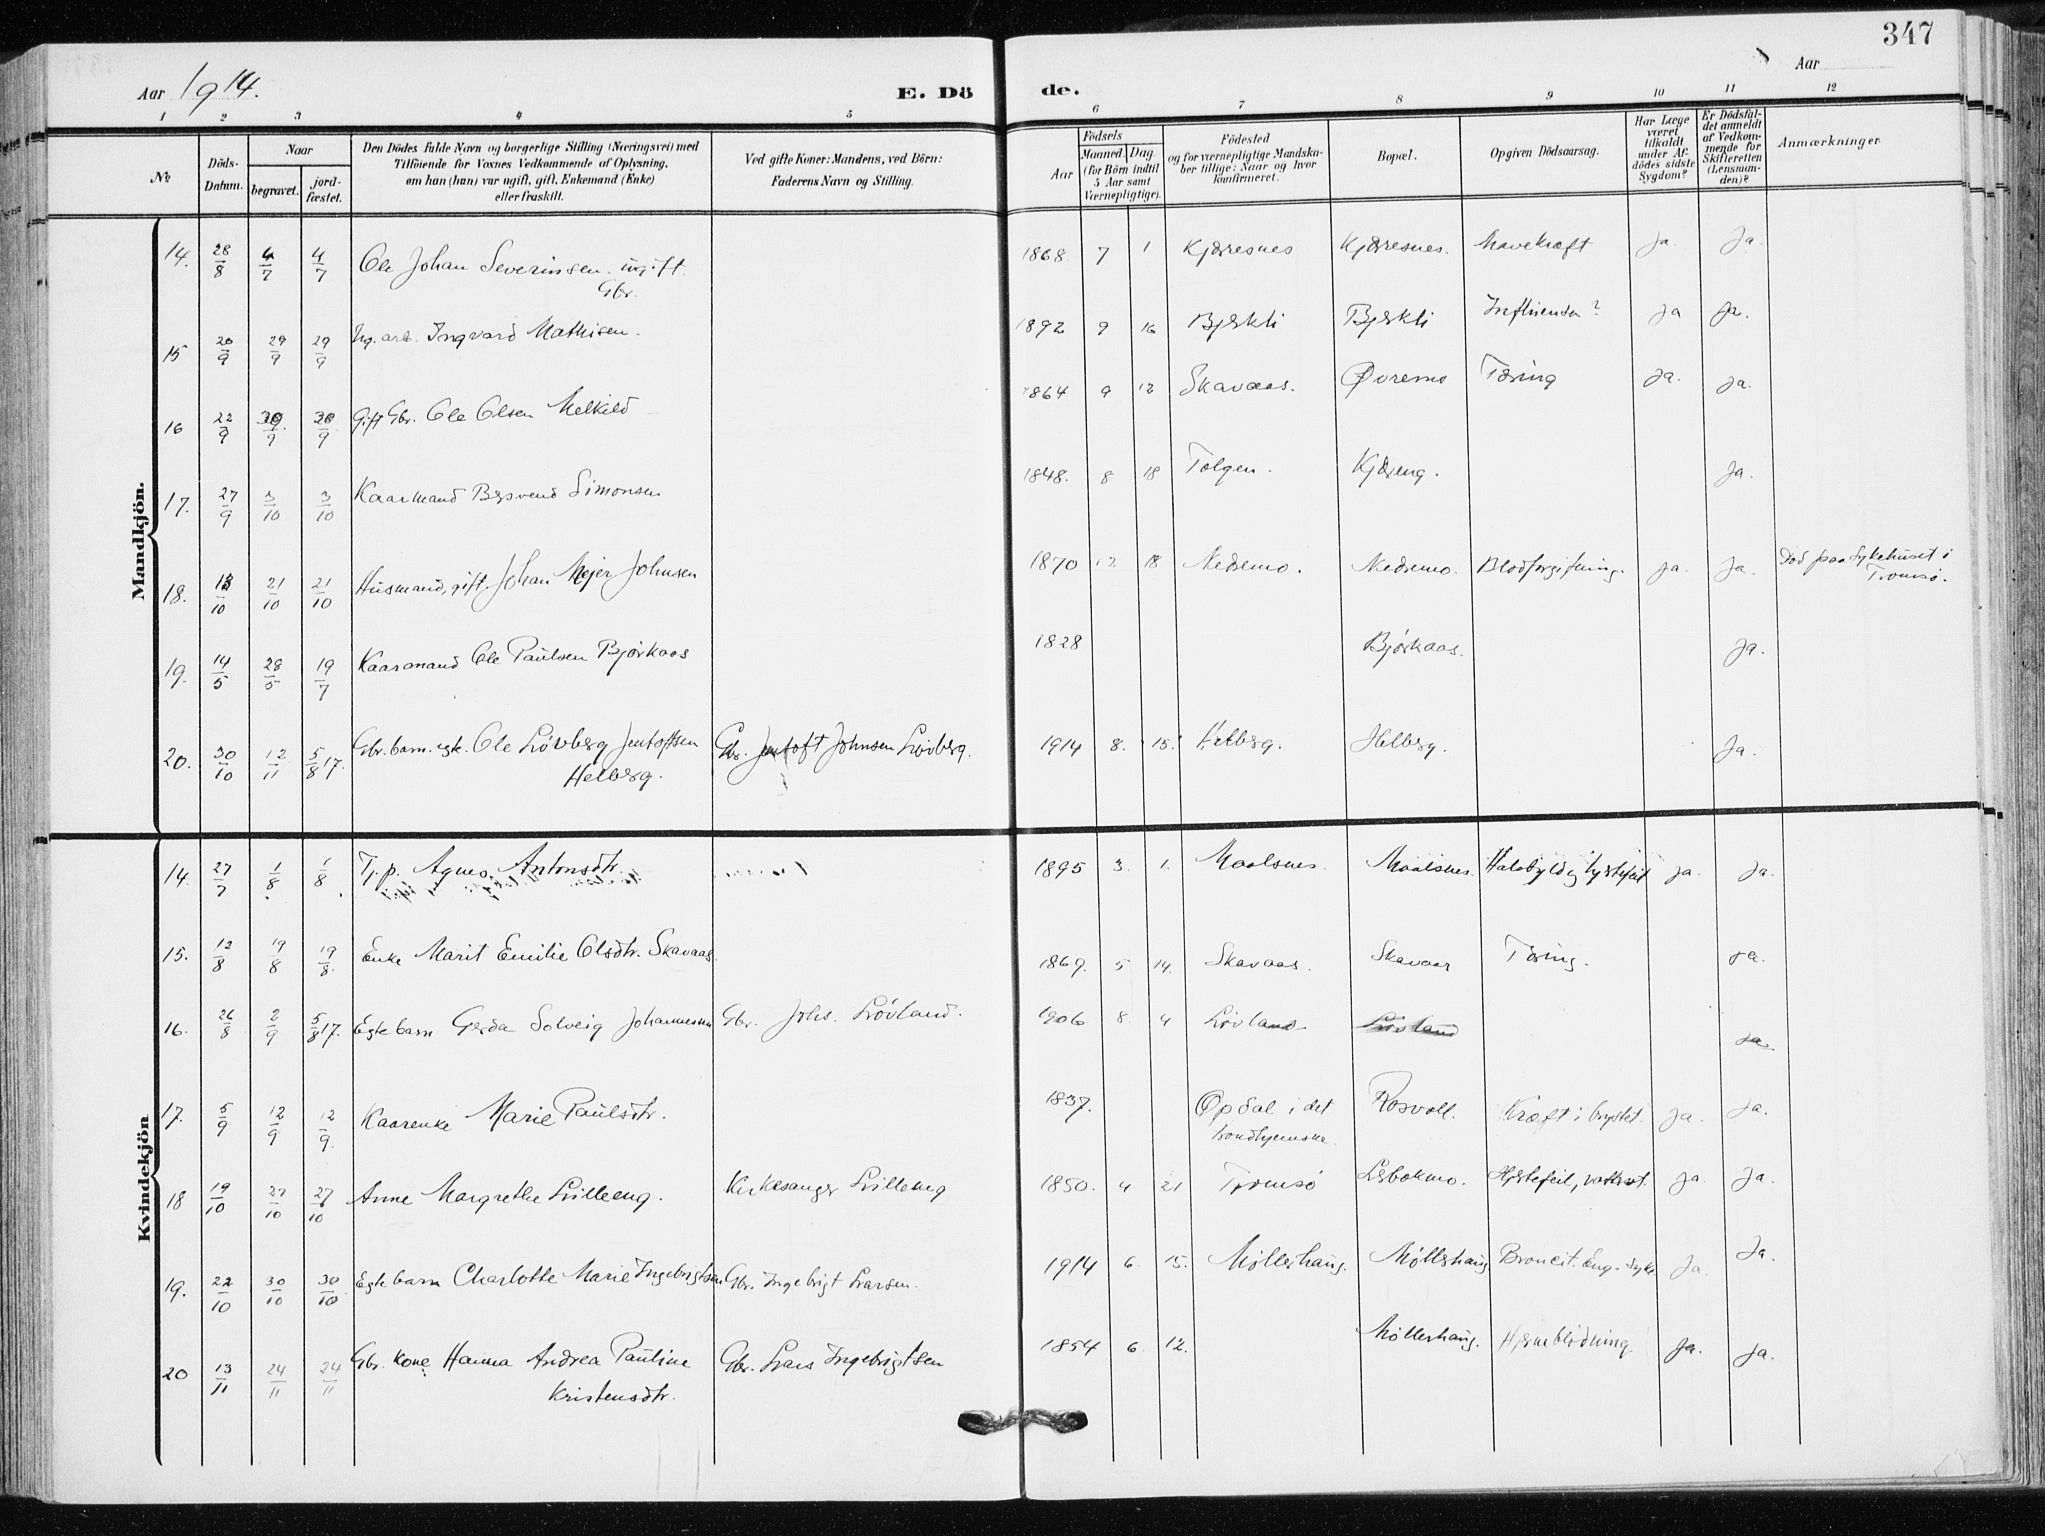 347
Aar 1914.
E. Dö de.
Aar
1 2 3 4 5 6 7 8 9 10 11 12
№
Döds-Datum.
Naar
begravet.
jord-fæstet.
Den Dödes fulde Navn og borgerlige Stilling (Næringsvei) med
Tilföiende for Voxnes Vedkommende af Oplysning,
om han (hun) var ugift, gift, Enkemand (Enke)
eller fraskilt.
Ved gifte Koner: Mandens, ved Börn:
Faderens Navn og Stilling.
Aar
Födsels
Maaned. Dag.
(for Börn indtil
5 Aar samt
Værnepligtige).
Födested
og for værnepligtige Mandska-
ber tillige: Naar og hvor
konfirmeret.
Bopæl.
Opgiven Dödsaarsag.
Har Læge
været
tilkaldt
under Af-
dödes sidste
Sygdom?
Er Dödsfal-
det anmeldt
af Vedkom-
mende for
Skifteretten
(Lensman-
den)?
Anmærkninger
Mandkjön.
14. 28/8 4/7 4/7 Ole Johan Severinsen. ugift. 1868. 7 1 Kjæresnes Kjæresnes. Mavekræft Ja. Ja.
Gbr.
15 20/9 29/9 29/9 Ug. arb. Ingvard Mathisen. 1892 9 16 Bjerkli Bjerkli Influensa? Ja Ja.
16 22/9 30/9 30/9 Gift Gbr. Ole Olsen Melkild 1864 9 12 Skavaas. Øvremo Tæring Ja. Ja.
17. 27/9 3/10 3/10 Kaarmand Besvend Simonsen 1848. 8 18 Tolgen. Kjæreng. Ja.
18. 13/10 21/10 21/10 Husmand, gift. Johan Mejer Johnsen 1870 12 18 Nedremo. Nedremo. Blodforgiftning. Ja. Ja. Død paa Sykehuset i
Tromsø.
19. 14/5 28/5 19/7 Kaarmand Ole Paulsen Bjørkaas 1828 Bjørkaas. Ja.
20. 30/10 12/11 5/8 17. Gbr. barn. egte. Ole Løvberg Jentoftsen Gbr. Jentoft Johnsen Løvberg. 1914 8. 15. Helberg. Helberg. Ja.
Helberg.
Kvindekjön
14. 27/7 1/8 1/8 Tj. p. Agnes Antonsdtr. 1895 3. 1. Maalsnes. Maalsnes. Halsbyld og hjertefeil Ja. Ja.
15. 12/8 19/8 19/8. Enke Marit Emilie Olsdtr. Skavaas. 1869. 5 14. Skavaas. Skavaas Tæring. Ja.
16. 26/8 2/9 5/8 17. Egte barn Gerda Solveig Johannesen Gbr. Johs. Løvland. 1906 8. 4 Løvland Løvland Ja.
17. 5/9 12/9 12/9. Kaarenke Marie Paulsdtr. 1837. Opdal i det Rosvoll. Kræft i brystet. Ja. Ja.
trondhjemske.
18 19/10 27/10 27/10 Anne Margrethe Lilleeng. Kirkesanger Lilleeng 1850. 4 21 Tromsø Hjertefeil, Ja. Ja.
19. 22/10 30/10 30/10 Egte barn Charlotte Marie Ingebrigtsen Gbr. Ingebrigt Larsen. 1914 6. 15. Møllerhaug. Møllerhaug Broncit. Eng. Syke Ja. Ja.
20 13/11 24/11 24/11 Gbr. kone Hanna Andrea Pauline Gbr. Lars Ingebrigtsen 1854 6. 12. Møllerhaug. Hjerneblødning. Ja. Ja.
Kristensdtr.